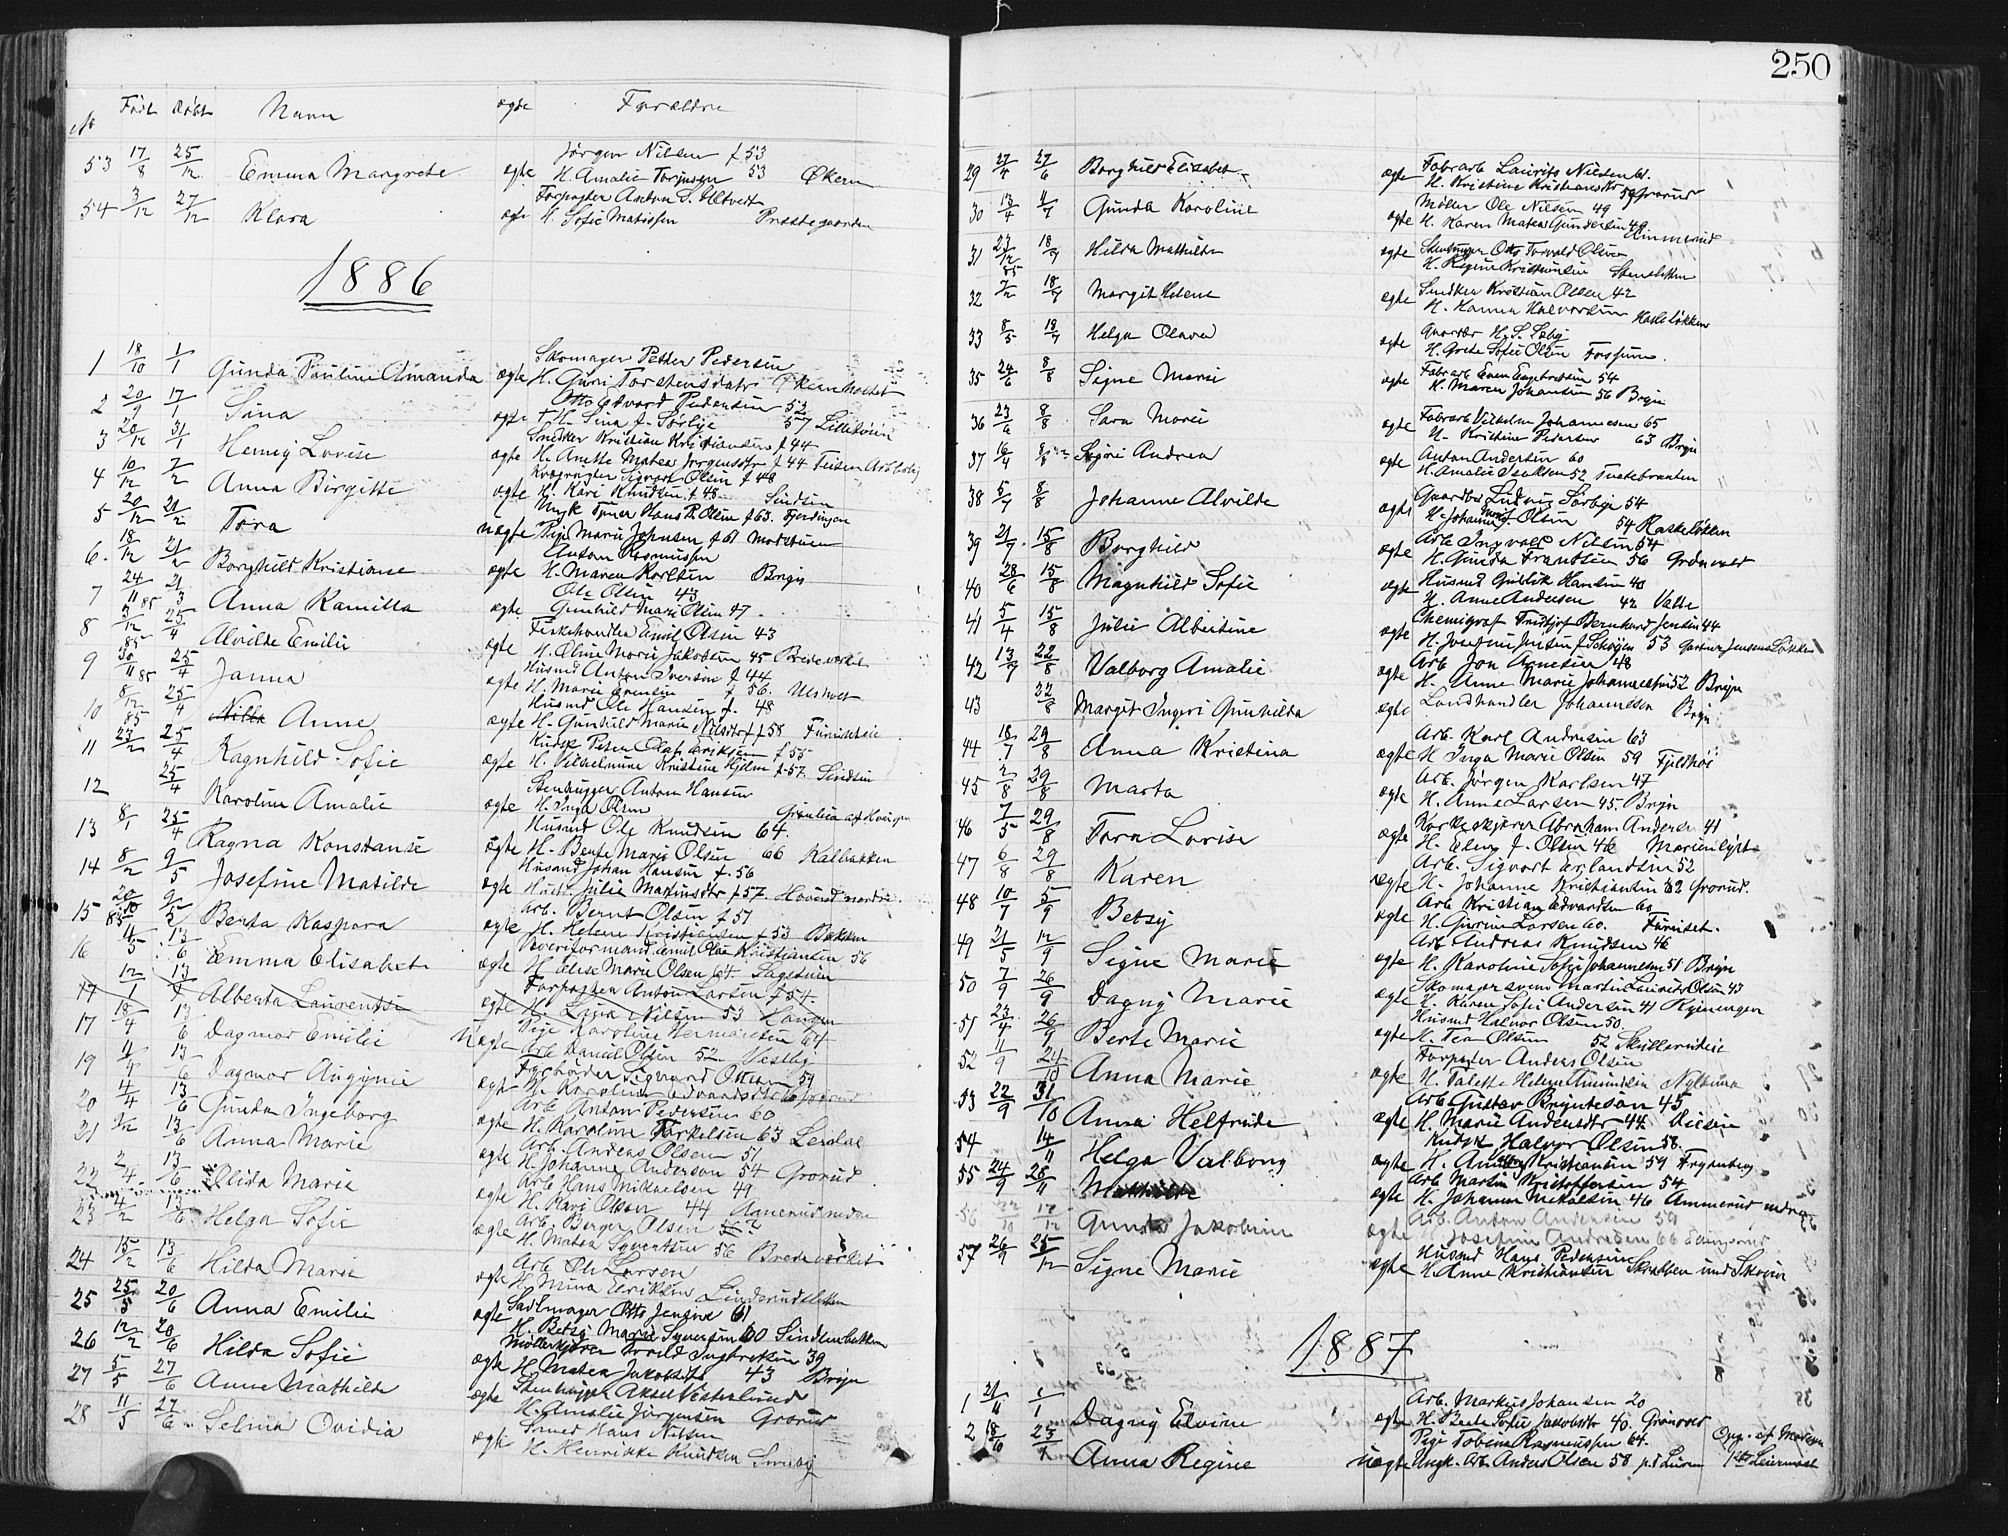 250
№ Født døbt Navn ægte Forældre
53 17/8 25/12 Emma Margrete ægte Jørgen Nilsen f 53
H. Amalie Torjusen 53 Økern
54 3/12 27/12 Klara ægte Forpagter Anton S. Ultvedt
H. Sofie Matissen Præstegaarden
1886
1 18/10 1/1 Gunda Pauline Amanda ægte Skomager Petter Pedersen
H. Guri Torstensdatr
2 20/9 17/1 Sina ægte Otto Edvard Pedersen 52
H. Sina f. Sørlie 57
3 20/12 31/1 Lovise ægte Snedker Kristian Kristiansen f 44
H. Anette Matea Jørgensdtr f 44
4 10/12 7/2 Anna Birgitte ægte Sigvart Olsen f 48
H. Kari Knudsen f 48 Sindsen
5 20/12 21/2 Tora uægte Ungk Hans P. Olsen f 63. Fjerdingen
Pige Marie Johnsen f 61
6. 18/12 21/2 Borghild Kristiane ægte Anton Rasmussen
H. Maren Karlsen Bryn
7 24/11 85 21/3 Anna Kamilla ægte Ole Olsen 43
Gunhild Marie Olsen 47
8 3/12 85 25/4 Alvilde Emilie ægte Fiskehandler Emil Olsen 43
H. Oline Marie Jakobsen 45 Bredeværket
9 30/11 85 25/4 Janna ægte Husmd Anton Iverson f 44
H. Marie Evensen f 56. Ulsholt
10 8/12 85 25/4 Anne ægte Husmd Ole Hansen f. 48
H. Gunhild Marie Nilsdtr f 58
11 23/2 25/4 Ragnhild Sofie ægte Kudsk Peter Olaf Eriksen f 55
H. Vilhelmine Kristine Hjelm f 57 Sindsen
12 25/4 Karoline Amalie ægte Stenhugger Anton Hansen
H. Inga Olsen
13 8/1 25/4 Ragna Konstanse ægte Husmd Ole Knudsen 64.
H. Bente Marie Olsen 66 Kalbakken
14 8/2 9/5 Josefine Matilde ægte Husmd Johan Hansen f. 56
Julie Martinsdtr f 57. Hovind nordre
15 20/10 85 9/5 Berta Kaspara ægte Arb. Bernt Olsen f 51
H. Helene Kristiansen f 53 Bakken
16 4/5 13/6 Emma Elisabet ægte Emil Olai Kristiansen 56
H. Elise Marie Olsen 64
17 12/1 13/ Alberta Laurentse ægte Forpagter Anton Larsen f 54.
H. Lava Nilsen 53 Haugen
17 18/4 13/6 Dagmar Emilie uægte Pige Karoline Hermansen 64
Arb Daniel Olsen 52 Vestby
19 13/6 Dagmar ægte Fyrbøder Sigvard Ottersen 59
H. Karoline Edvardsdtr Grorud
20 4/4 13/6 Gunda Ingeborg ægte Arb. Anton Pedersen 60
H. Karoline Torkelsen 63 Leirdal
21 13/6 Anna Marie ægte Arb. Andreas Olsen 51
H. Johanne Anderson 54 Grorud
22 2/4 13/6 Olida Marie ægte Arb Hans Mikaelsen 49
H. Kari Olsen 44
23 4/2 13/6 Helga Sofie ægte Arb. Berger Olsen
H. Matea Syvertsen 56 Bredeværket
24 15/2 13/6 Hilda Marie ægte Arb Ole Larsen
H. Mina Eriksen Linderudsletten
25 25/5 20/6 Anna Emilie ægte Sadlmager Otto Jensen 61
H. Betsy Marie Syversen 60 Sindsenbakken
26 12/2 20/6 Hilda Sofie ægte Møllerkjører Ingbretsen 39
H. Matea Jakobsdtr 43 Bryn
27 5/5 27/6 Anne Mathilde ægte Stenhugger Aksel Vesterlund
H. Amalie Jørgensen Grorud
28 11/5 27/6 Selma Ovidia ægte Smed Hans Nilsen
H. Henrikke Knudsen
29 27/4 27/6 Borghild Elisabet ægte Fabrarb Laurits Nielsen 61.
H. Kristine Kristiansdtr 59 Grorud
30 13/4 4/7 Gunda Karoline ægte Møller Ole Nilsen 49
H. Karen Matea Gundersen 49 Ammerud
31 23/12 85 18/7 Hilda Mathilde ægte Stenhugger Otto Torvald Olsen
H. Regine Kristiansen
32 7/2 18/7 Margit Helene ægte Snedker Kristian Olsen 42
H. Hanna Halvorsen Hasleløkken
33 8/5 18/7 Helga Olava ægte Gaardbr H. S. Sæby
H. Grete Sofie Olsen Fossum.
35 24/6 8/8 Signe Marie ægte Fabrarb Even Engebretsen 54
H. Maren Johansen 56 Bryn
36 23/6 8/8 Sara Marie ægte Fabrarb Vilhelm Johannesen 65
H. Kristine Pedersen 63 Bryn
37 16/4 8/8 Andrea ægte Anton Andersen 60
H. Amalie Isaksen 52 Tvetebraaten
38 5/7 8/8 Johanne Alvilde ægte Gaardbr Ludvig Sørbye 54
H. Johanne Marie Olsen 54
39 21/7 15/8 Borghild ægte Arb Ingvald Nilsen 54
H. Gunda Frantsen 56 Grønvold
40 28/6 15/8 Magnhild Sofie ægte Husmd Gulbrik Hansen 40
H. Anne Andersen 42 Valle
41 5/4 15/8 Julie Albertine ægte Chemigraf Fridtjof Bernhard Jensen 44
H. Josefine Jensen f Schøyen 53 Gartner Jensens Løkken
42 13/7 22/8 Valborg Amalie ægte Arb Jon Arnesen 48
H. Anne Marie Johannesen 52 Bryn
43 22/8 Margit Ingvi Gunhilda ægte Landhandler Johannesen Bryn
44 18/7 29/8 Anna Kristina ægte Arb. Karl Andresen 63
H Inga Marie Olsen 59 Fjeldhøi
45 2/8 29/8 Marta ægte Arb. Jørgen Karlsen 47
H. Anne Larsen 45 Bryn
46 7/5 29/8 Tora Lovise ægte Korkeskjærer Abraham Andersen 41
H. Elen J. Olsen 46 Marienlyst
47 6/8 29/8 Karen ægte Arb. Sigvart Erlandsen 52
H. Johanne Kristiansen 62 Grorud.
48 10/7 5/9 Betsy ægte Arb Kristian Edvardsen 60
H. Gurine Larsen 60. Furuset.
49 21/5 12/9 Signe Marie ægte Arb Andreas Knudsen 46
H. Karoline Sofie Johannesen 51 Bryn
50 7/9 26/9 Dagny Marie ægte Skomagersvend Martin Laurits Olsen 43
H. Karen Sofie Andersen 41
51 23/4 26/9 Berte Marie ægte Husmd Halvor Olsen 50.
H. Tea Olsen 52
52 11/9 24/10 Anna Marie ægte Forpagter Anders Olsen
H. Valette Helene Amundsen
53 22/9 31/10 Anna Helfride ægte Arb Gustav Bryntesen 45
H. Marie Andersdtr 44 Risløkken
54 14/11 Helga Valborg ægte Kudsk Halvor Olsen 58.
H. Kristiansen 59 Frydenberg
55 24/9 28/11 Mathilde ægte Arb Martin Kristoffersen 54
H. Johanne Mikalsen 46 Ammerud nedre
56 17/12 Gunda Jakobine ægte Arb. Anton Andersen 59
H. Josefine Andresen 66
57 26/9 25/12 Signe Marie ægte Husmd Hans Pedersen
H. Anne Kristiansen Skrabben und Skøien
1887
1 21/11 1/1 Dagny Elvine ægte Arb. Markus Johansen 20
H. Berte Sofie Jakobsdtr 40. Grønvold
2 18/6 23/1 Anna Regine uægte Pige Tobina Rasmussen 64. Opg. af Moderen
Ungk. Arb. Anders Olsen 58 1ste Leiermaal